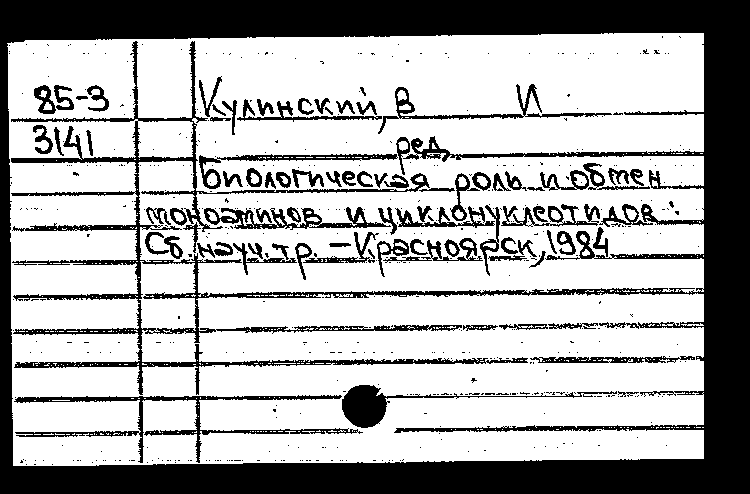 85-3 Кулинский, В И
3141 ред.
Биологическая роль и обмен
моноаминов и циклонуклеотидов:
Сб. науч. тр. – Красноярск, 1984